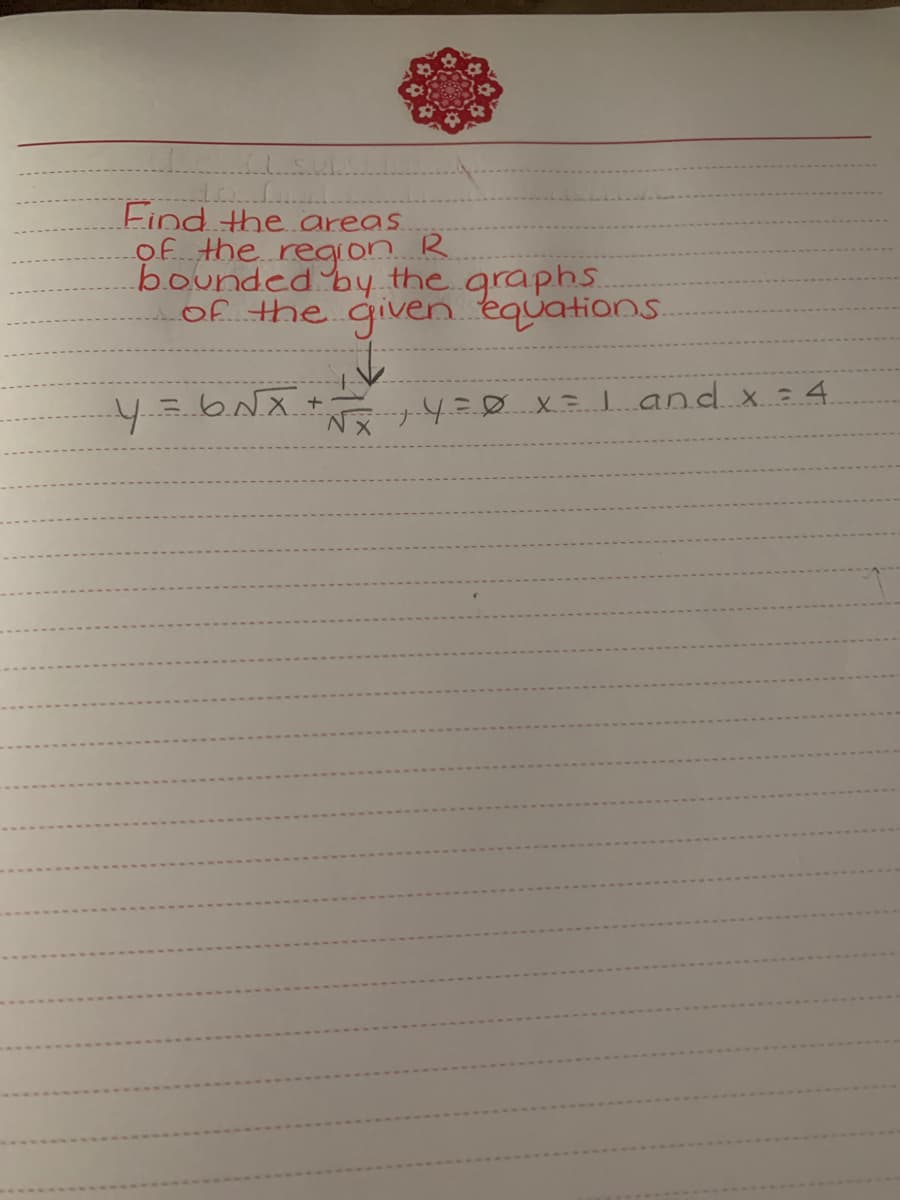 Find the areas
of the region R
bounded by the graphs
of the given equations
↓
y = 6√x + 1/√x , y = Ø x = 1 and x = 4